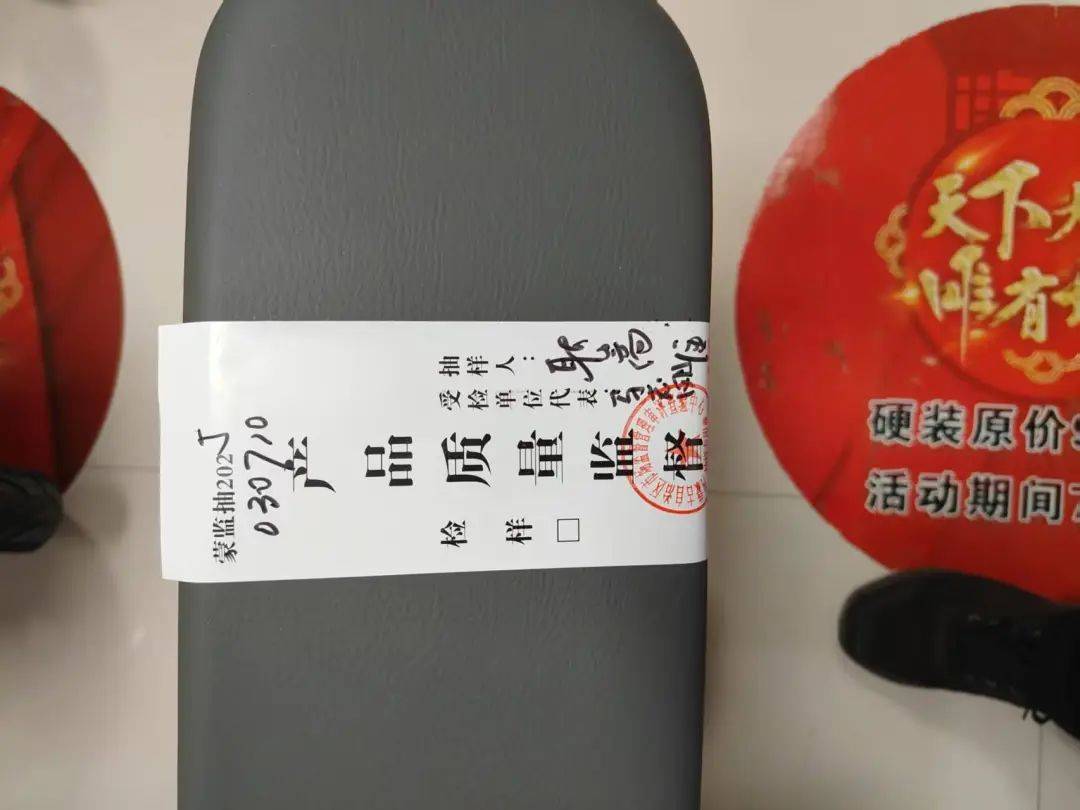 蒙监抽202
030710
产品质量监督
检样□
抽样人：
受检单位代表
天下
唯有
硬装原价
活动期间7